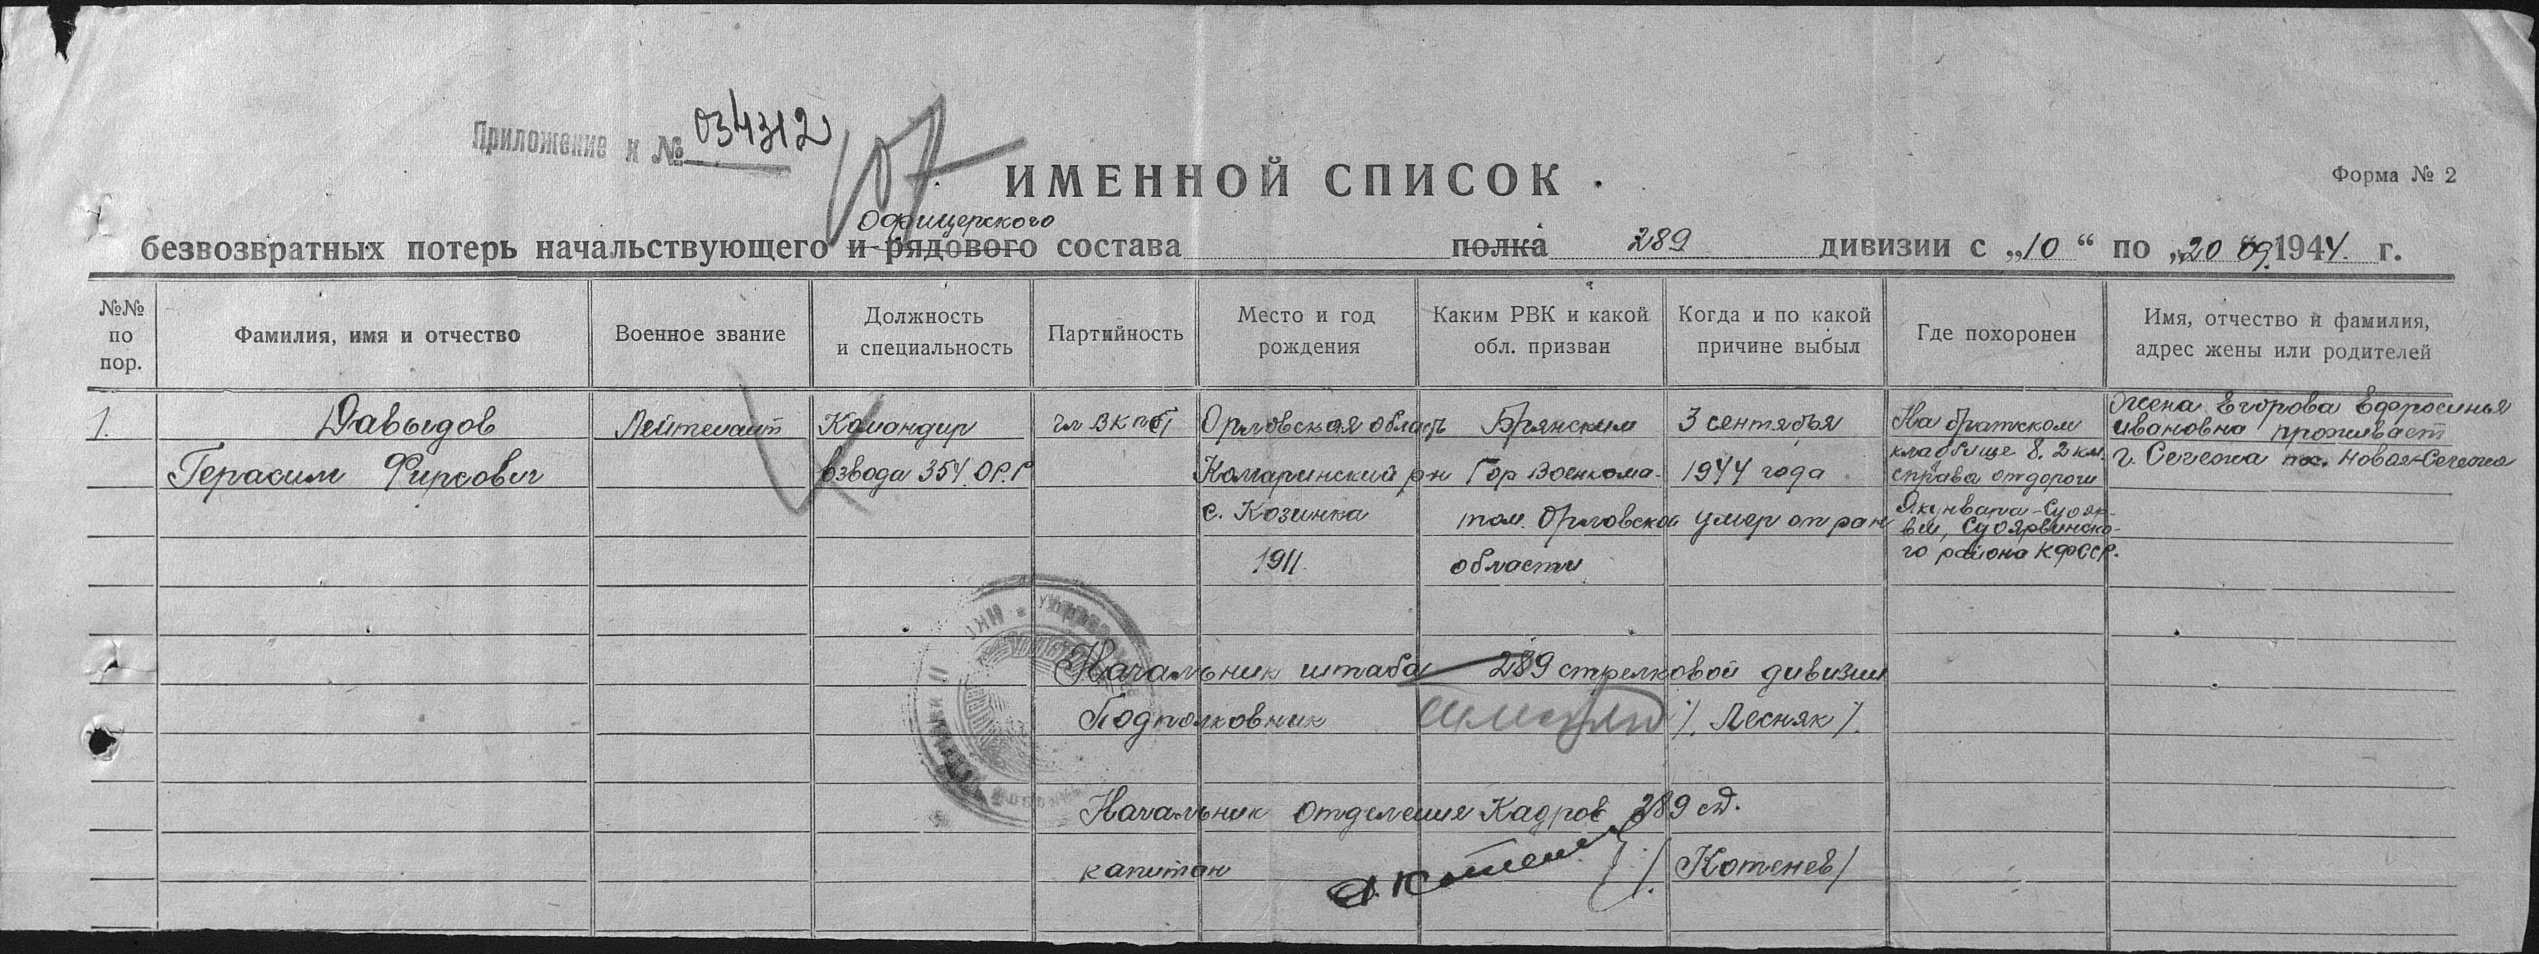 Приложение к № 034312
107
ИМЕННОЙ СПИСОК
Форма № 2
Офицерского
безвозвратных потерь начальствующего и рядового состава полка 289 дивизии с „10“ по „20“ 09.1944. г.
№№ по пор.
Фамилия, имя и отчество
Военное звание
Должность и специальность
Партийность
Место и год рождения
Каким РВК и какой обл. призван
Когда и по какой причине выбыл
Где похоронен
Имя, отчество и фамилия, адрес жены или родителей
1.
Давыдов
Герасим Фирсович
Лейтенант
Командир
взвода 354 ОРР
чл ВКПб
Орловская область
Комаринский рн
с. Козинка
1911.
Брянским
Гор Военкома-
том. Орловской
области
3 сентября
1944 года
умер от ран
На братском
кладбище 8. 2 км.
справа от дороги
Якунвара-Суояр-
ви, Суоярвинско-
го района КФССР.
Жена Егорова Ефросинья
Ивановна проживает
г. Сечежа пос. Новая-Сечежа
Начальник штаба 289 стрелковой дивизии
Подполковник /. Лесняк /.
Начальник отделения Кадров 289 сд.
капитан /. Котенев /